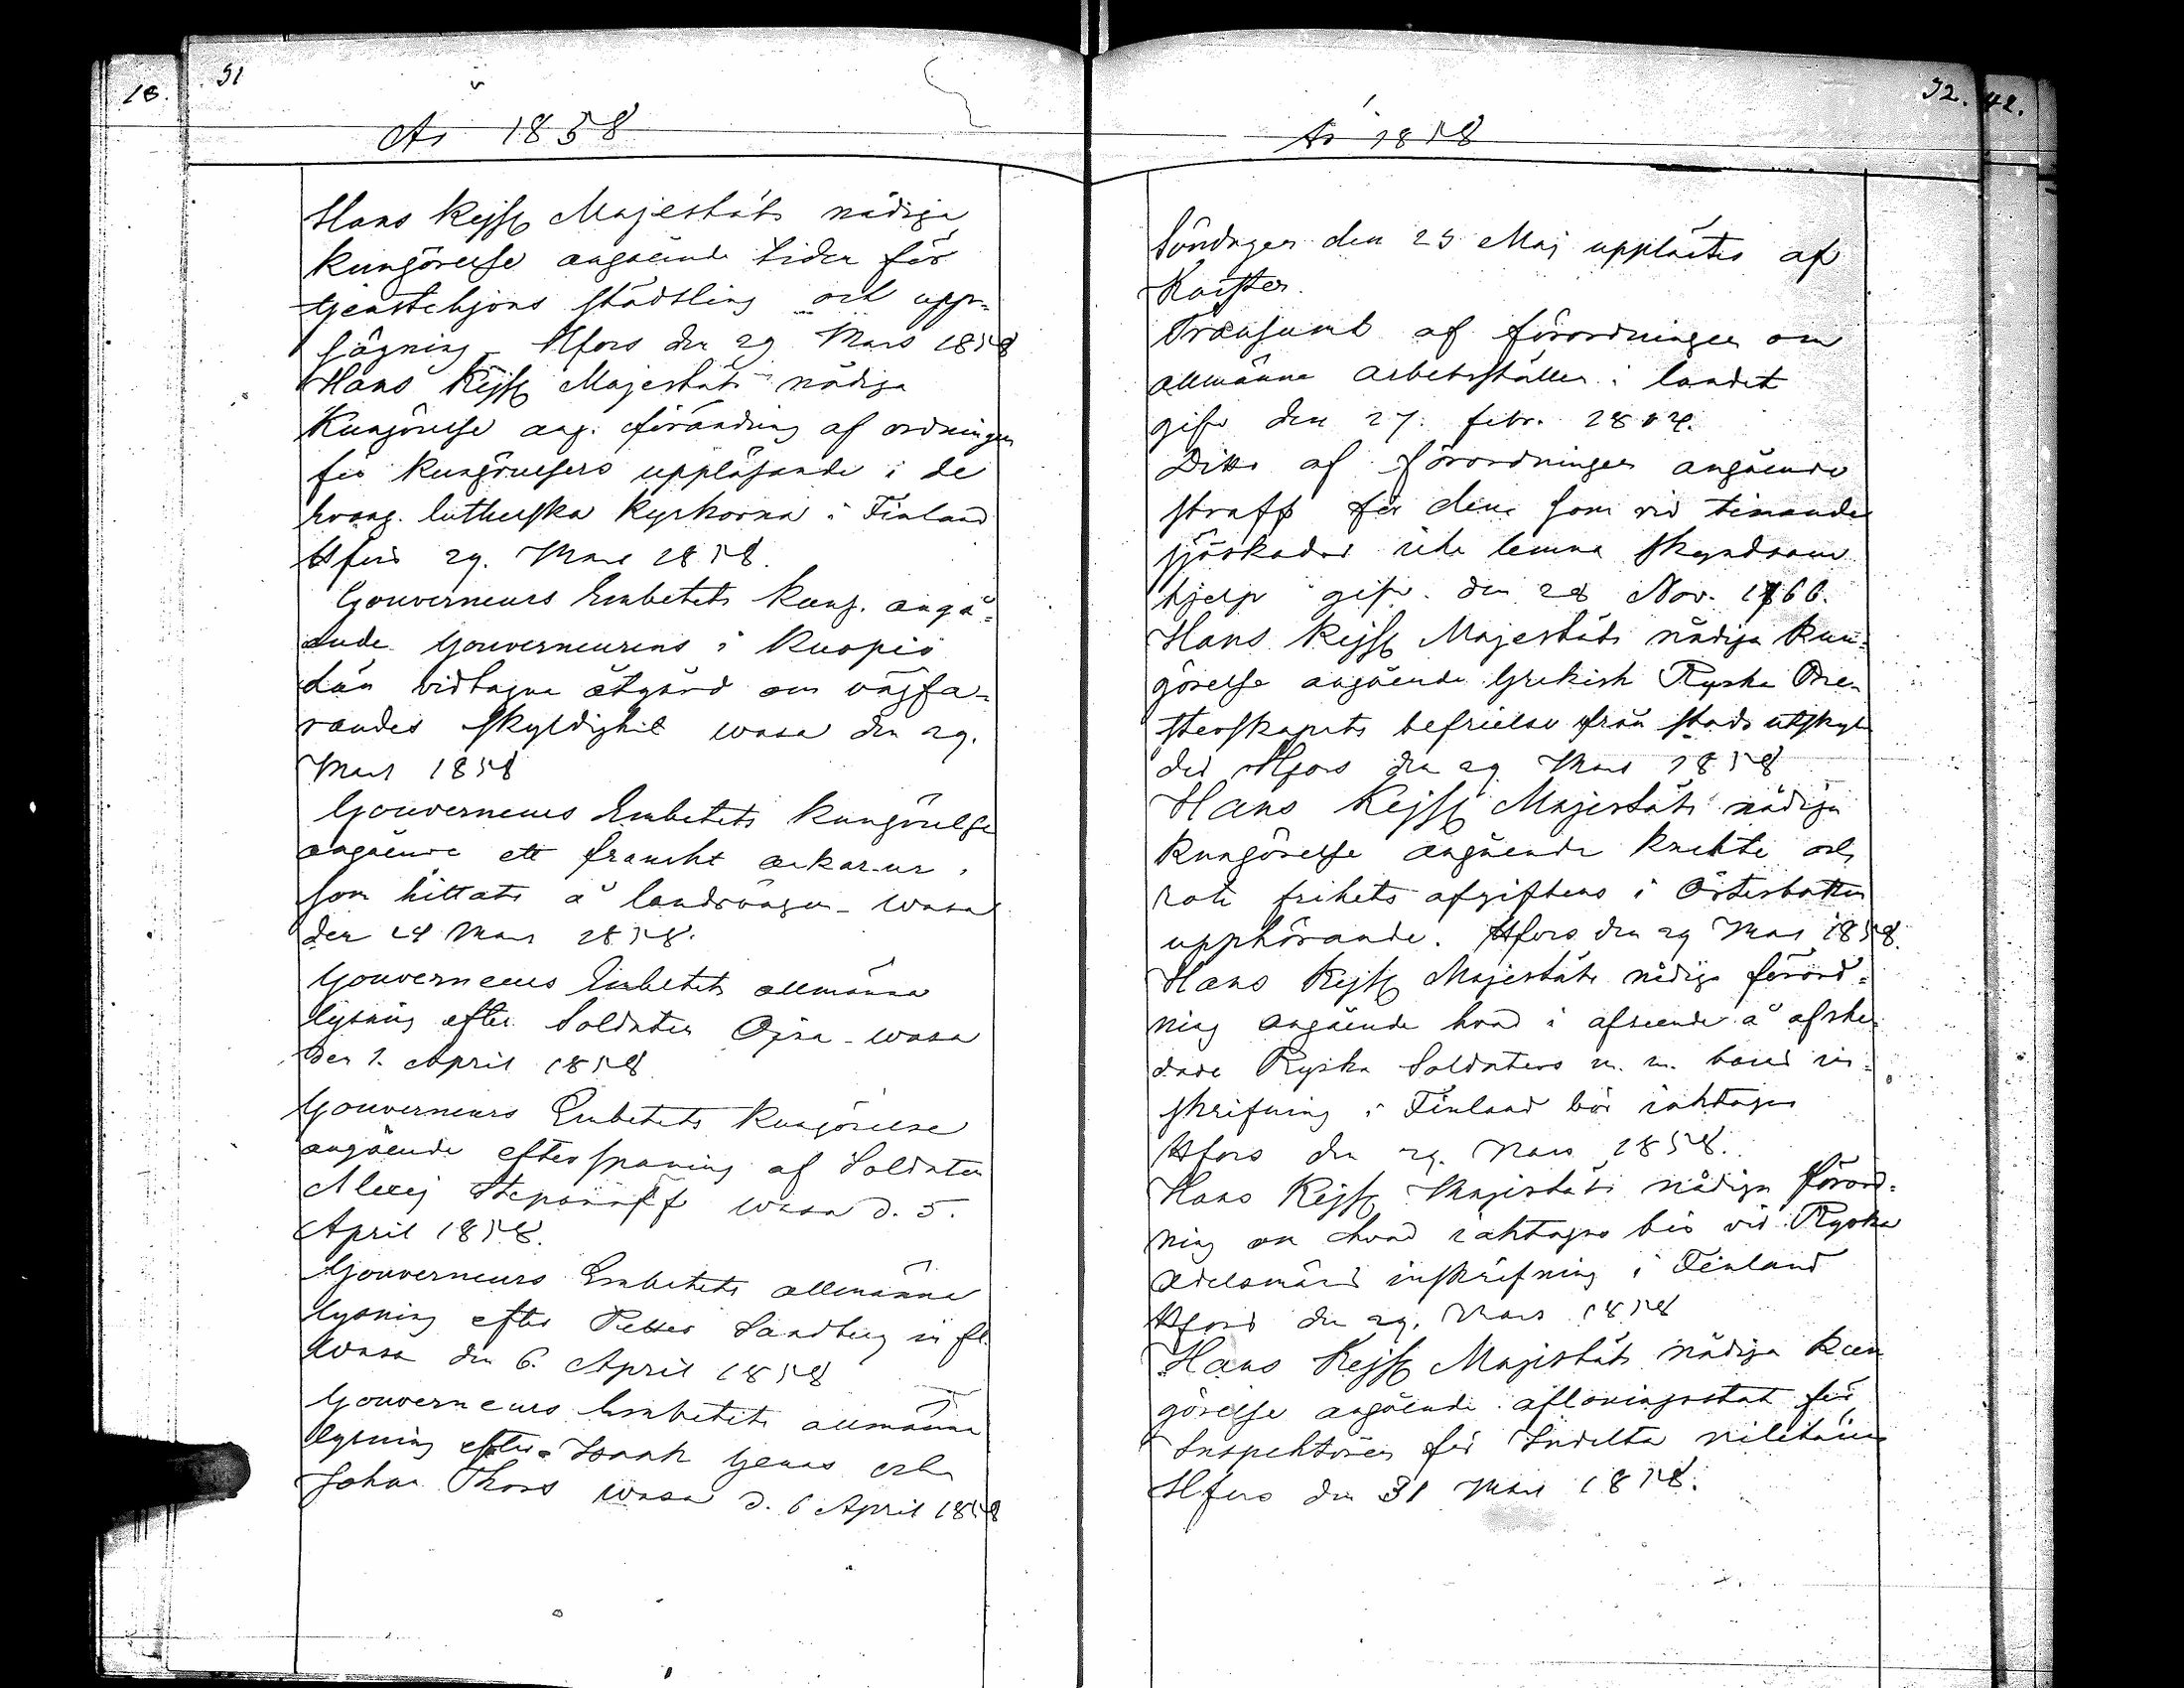 18.
51
År 1858
Hans Kejss Majestäts nådiga
kungörelse angående tider för
tjenstehjons städsling och upp-
sägning Hfors den 29 Mars 1858
Hans Kejss Majestäts nådiga
Kungörelse ang. förändring af ordningen
för kungörelsers uppläsande i de
evang. lutherska kyrkorna i Finland
Hfors 29. Mars 1858.
Gouverneurs Embetets kung. angå-
ende Gouverneurens i Kuopio
län vidtagna åtgärd om vägfa-
randes skyldighet Wasa den 29.
Mars 1858
Gouverneurs Embetets kungörelse
angående ett franskt
som hittats å landsvägen Wasa
den 24 Mars 1858.
Gouverneurs Embetets allmänna
lysning efter Soldaten Ojsa Wasa
den 1. April 1858
Gouverneurs Embetets Kungörelse
angående efterspaning af Soldaten
Alexej Stepanoff Wasa d. 5.
April 1858.
Gouverneurs Embetets allmänna
lysning efter Petter Sandberg m fl.
Wasa den 6. April 1858
Gouverneurs Embetets allmänna
lysning efter Isaak Genas och
Johan Thors Wasa d. 6 April 1858
52. 42.
År 1858
Söndagen den 23 Maj upplästes af
Transumt af förordningen om
allmänna arbetsställen i landet
gifv den 27. febr. 1804.
Ditto af förordningen angående
straff för dem som vid timande
sjöskador icke lemna skyndsam
hjelp gifv. den 28 Nov. 1766.
Hans Kejss Majestäts nådiga kun-
görelse angående Grekisk Ryska Pre-
sterskapets befrielse från stads utskyl
der Hfors den 29 Mars 1858
Hans Kejss Majestäts nådiga
Kungörelse angående knekte och
rote frihets afgiftens i Österbotten
upphörande. Hfors den 29 Mars 1858.
Hans Kejss Majestäts nådiga förord-
ning angående hvad i afseende å afske-
dade Ryska Soldaters m. m. barns in-
skrifning i Finland bör iakttagas
Hfors den 29. Mars 1858.
Hans Kejss Majestäts nådiga förord-
ning om hvad iakttagas bör vid Ryska
Adelsmäns inskrifning i Finland
Hfors den 29. Mars 1858
Hans Kejss Majestäts nådiga kun
görelse angående afloningsstat för
Inspektören för Indelta militären
Hfors den 31 Mars 1858.